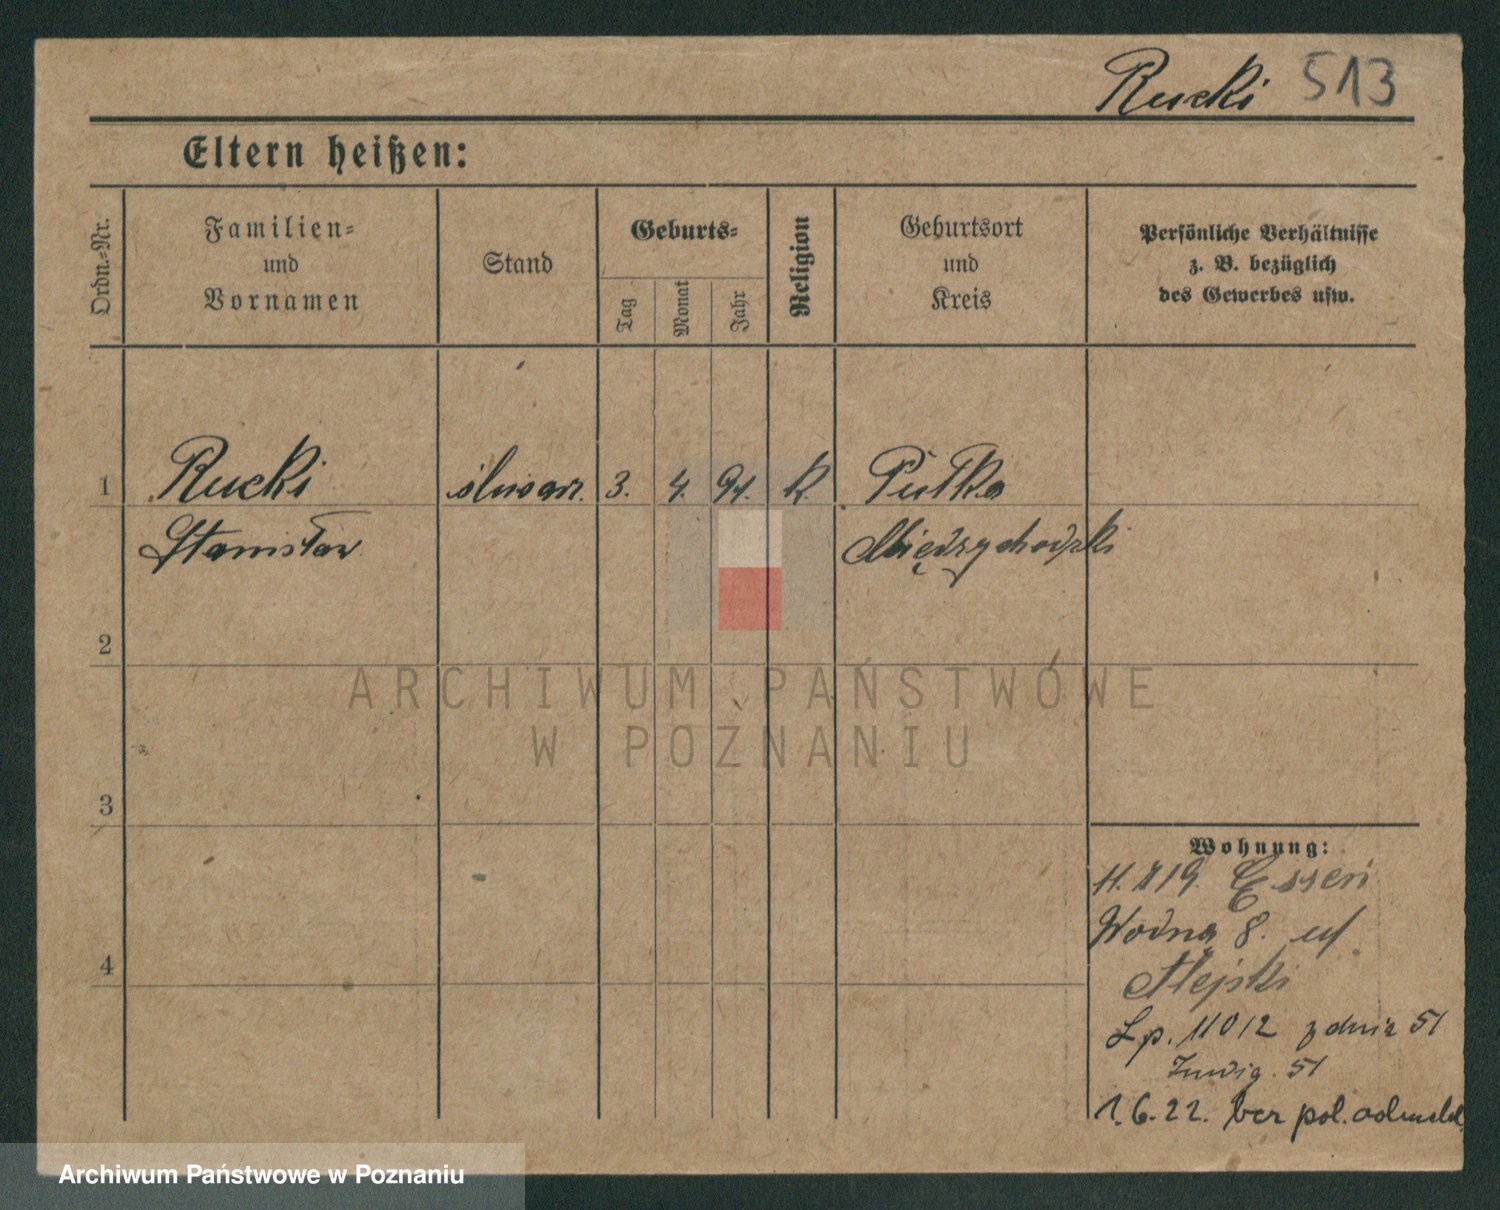 Rucki 513
Eltern heißen:
Ordn.-Nr.
Familien-
und
Vornamen
Stand
Geburts-
Tag
Monat
Jahr
Religion
Geburtsort
und
Kreis
Persönliche Verhältnisse
z. B. bezüglich
des Gewerbes usw.
1 Rucki ślusarz. 3. 4. 94. k. Pułka
Stanisław Międzychodzki
2
3
4
Wohnung:
Essen
Wodna 8. u
Lp. 11012 z dnia 51
51
1.6.22. bez pol. odmeld.
ARCHIWUM PAŃSTWOWE
W POZNANIU
Archiwum Państwowe w Poznaniu